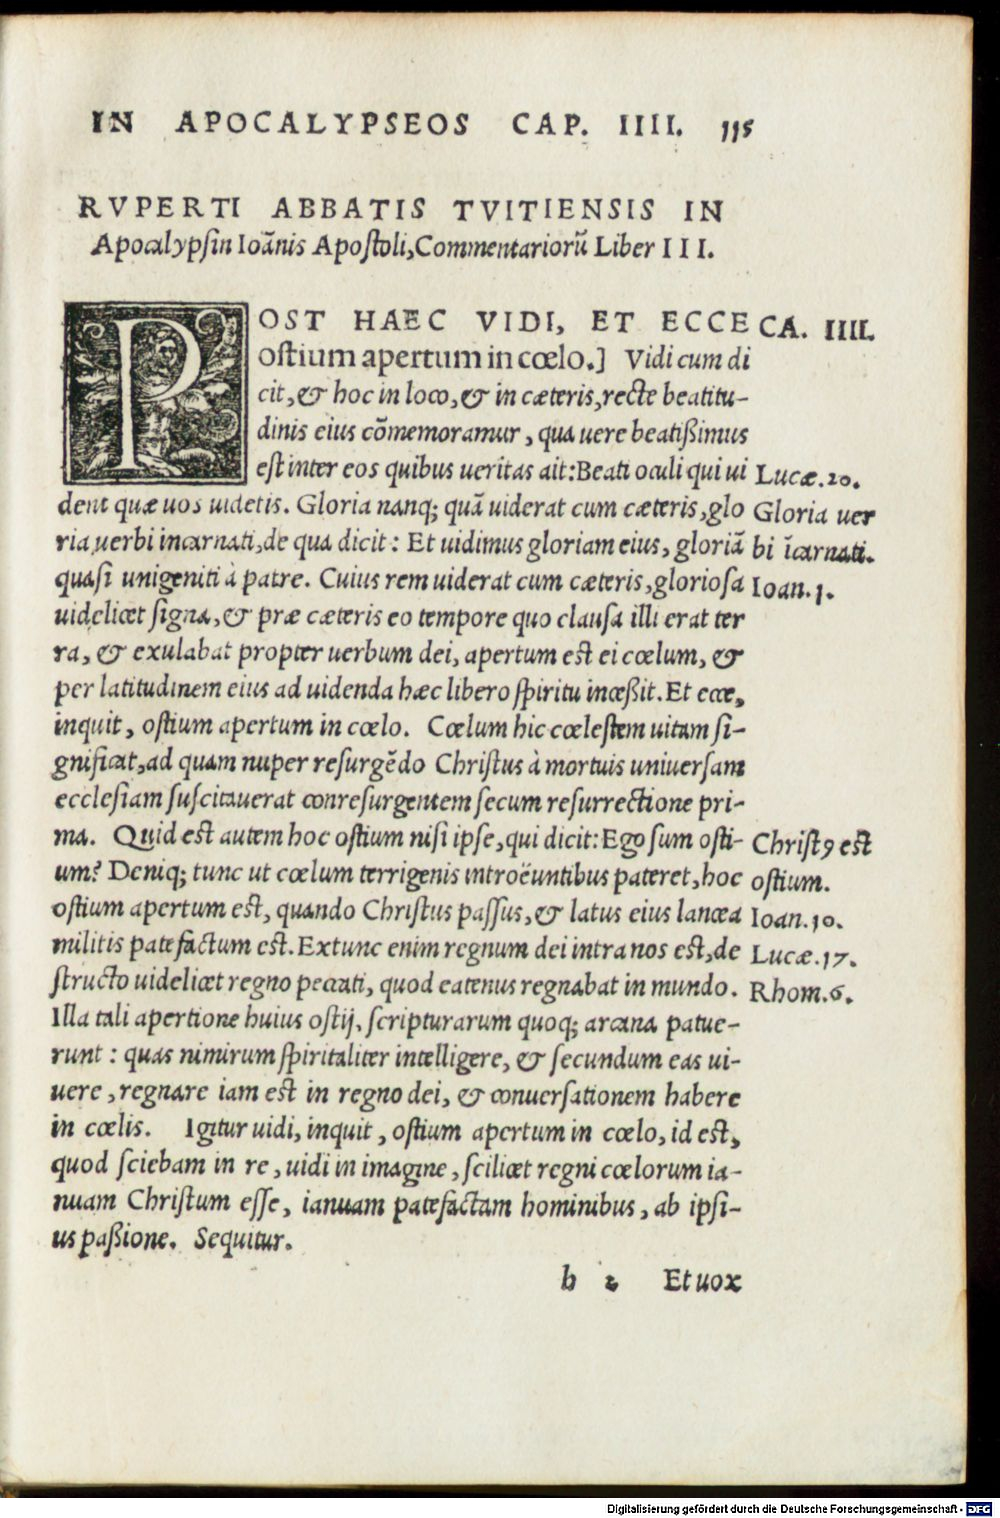 IN APOCALYPSEOS CAP. IIII. 115
RVPERTI ABBATIS TVITIENSIS IN
Apocalypsin Ioãnis Apostoli, Commentariorũ Liber III.
POST HAEC VIDI, ET ECCE
CA. IIII.
ostium apertum in cœlo.] Vidi cum di
cit, & hoc in loco, & in cæteris, recte beatitu-
dinis eius cõmemoramur, qua uere beatißimus
est inter eos quibus ueritas ait: Beati oculi qui ui
Lucæ. 10.
dent quæ uos uidetis. Gloria nanq; quã uiderat cum cæteris, glo
Gloria uer
ria uerbi incarnati, de qua dicit: Et uidimus gloriam eius, gloriã
bi ĩcarnati.
quasi unigeniti à patre. Cuius rem uiderat cum cæteris, gloriosa
Ioan. 1.
uidelicet signa, & præ cæteris eo tempore quo clausa illi erat ter
ra, & exulabat propter uerbum dei, apertum est ei cœlum, &
per latitudinem eius ad uidenda hæc libero spiritu inceßit. Et ecce,
inquit, ostium apertum in cœlo. Cœlum hic cœlestem uitam si-
gnificat, ad quam nuper resurgẽdo Christus à mortuis uniuersam
ecclesiam suscitauerat conresurgentem secum resurrectione pri-
ma. Quid est autem hoc ostium nisi ipse, qui dicit: Ego sum osti-
Christꝰ est
um? Deniq; tunc ut cœlum terrigenis introëuntibus pateret, hoc
ostium.
ostium apertum est, quando Christus passus, & latus eius lancea
Ioan. 10.
militis patefactum est. Extunc enim regnum dei intra nos est, de
Lucæ. 17.
structo uidelicet regno peccati, quod eatenus regnabat in mundo.
Rhom. 6.
Illa tali apertione huius ostij, scripturarum quoq; arcana patue-
runt: quas nimirum spiritaliter intelligere, & secundum eas ui-
uere, regnare iam est in regno dei, & conuersationem habere
in cœlis. Igitur uidi, inquit, ostium apertum in cœlo, id est,
quod sciebam in re, uidi in imagine, scilicet regni cœlorum ia-
nuam Christum esse, ianuam patefactam hominibus, ab ipsi-
us paßione. Sequitur.
b 2 Et uox
Digitalisierung gefördert durch die Deutsche Forschungsgemeinschaft - DFG